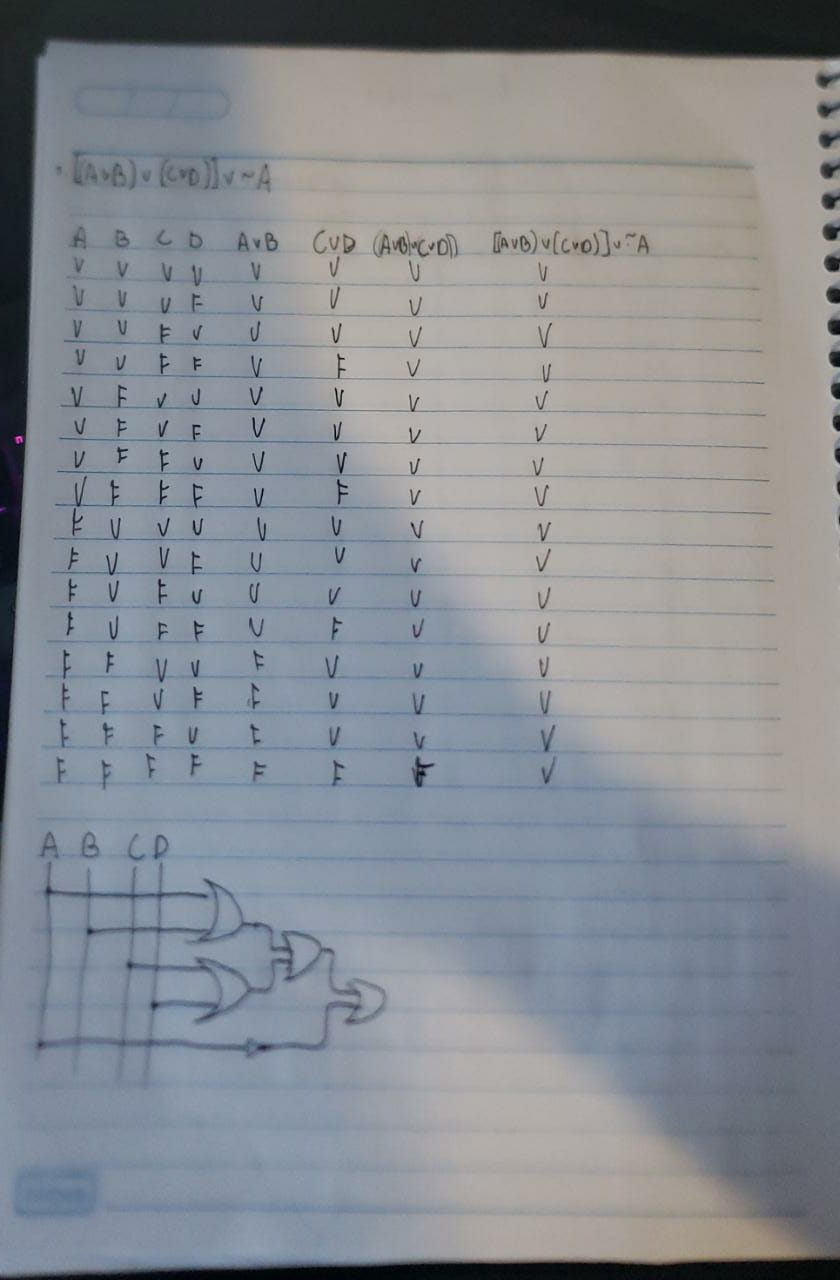 [(AvB)v(CvD)]v~A
A B C D AvB CvD (AvB)v(CvD)) [(AvB)v(CvD)]v~A
V V V V V V V V
V V V F V V V V
V V F V V V V V
V V F F V F V V
V F V V V V V V
V F V F V V V V
V F F V V V V V
V F F F V F V V
F V V V V V V V
F V V F V V V V
F V F V V V V V
F V F F V F V V
F F V V F V V V
F F V F F V V V
F F F V F V V V
F F F F F F F V
A B C D